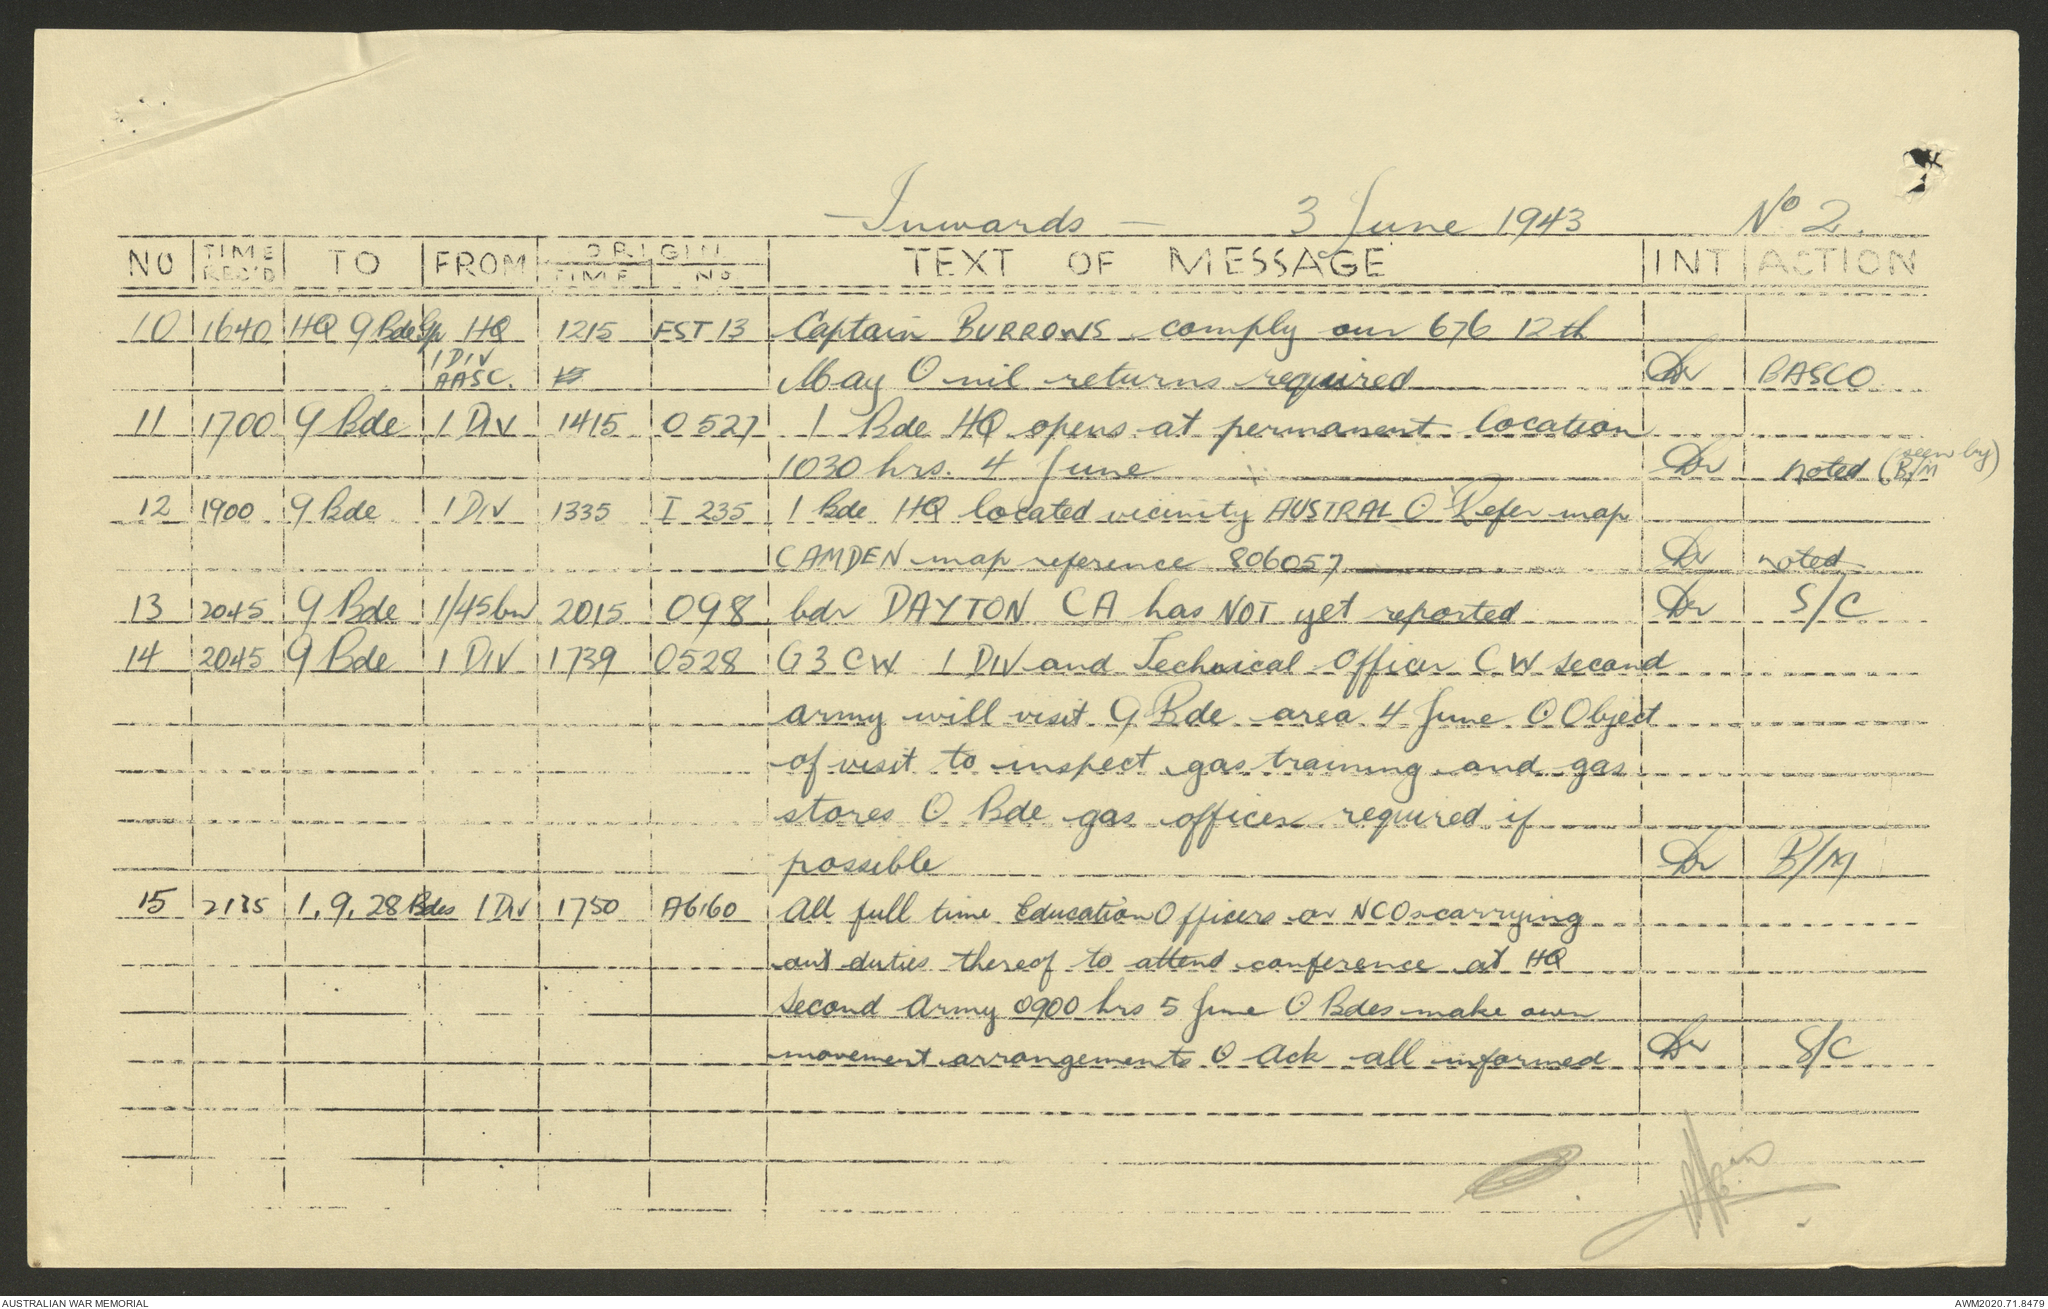 — Inwards — 3 June 1943 No 2.
NO TIME REC'D TO FROM ORIGIN TIME No. TEXT OF MESSAGE INT ACTION
10 1640 HQ 9 Bde Gp HQ 1215 FST 13 Captain BURROWS comply our 676 12th
1 DIV
AASC. May O nil returns required Dr BASCO
11 1700 9 Bde 1 DIV 1415 O 527 1 Bde HQ opens at permanent location
1030 hrs. 4 June Dr noted (seen by B/M)
12 1900 9 Bde 1 DIV 1335 I 235 1 Bde HQ located vicinity AUSTRAL O Refer map
CAMDEN map reference 806057 Dr noted
13 2045 9 Bde 1/45 bn 2015 098 bdr DAYTON CA has NOT yet reported Dr S/C
14 2045 9 Bde 1 DIV 1739 0528 G3 CW 1 DIV and Technical Officer CW second
army will visit 9 Bde area 4 June O Object
of visit to inspect gas training and gas
stores O Bde gas officer required if
possible Dr B/M
15 2135 1, 9, 28 Bdes 1 Div 1750 A6160 All full time Education Officers or NCOs carrying
out duties thereof to attend conference at HQ
Second Army 0900 hrs 5 June O Bdes make own
movement arrangements O Ack all informed Dr S/C
AUSTRALIAN WAR MEMORIAL AWM2020.71.8479